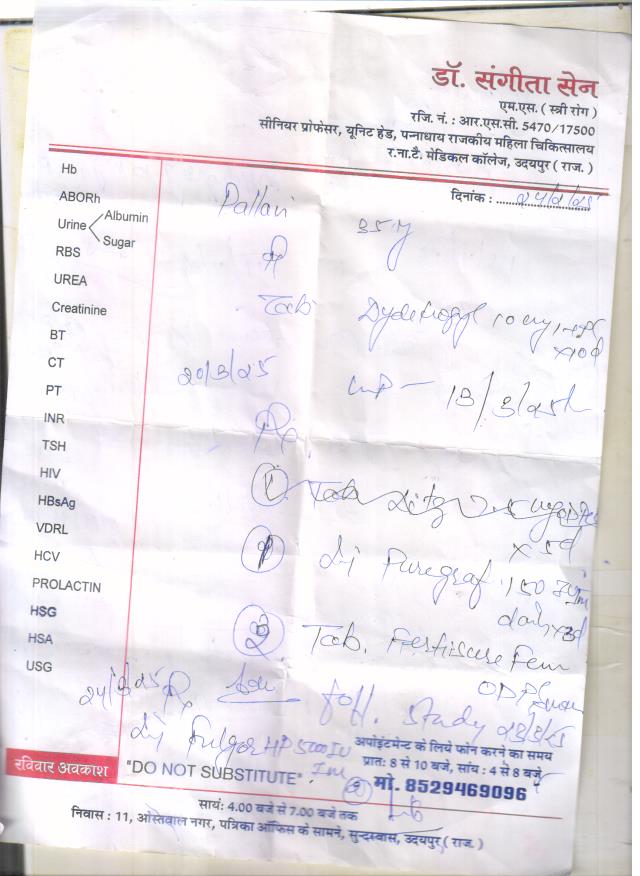 डॉ. संगीता सेन
एम.एस. ( स्त्री रोग )
रजि. नं. : आर.एस.सी. 5470/17500
सीनियर प्रोफेसर, यूनिट हेड, पन्नाधाय राजकीय महिला चिकित्सालय
र.ना.टै. मेडिकल कॉलेज, उदयपुर ( राज. )
दिनांक :
Hb
ABORh
Pallavi 35 y
Urine Albumin
Sugar
RBS
UREA
Tab 10 mg
Creatinine
x10d
BT
CT
20/3/25 LMP - 13/3/25
PT
INR
Rx
TSH
HIV
① Tab
HBsAg
x 5d
VDRL
① Inj Puregraf 150 IU Im
HCV
daily x3d
PROLACTIN
② Tab. Fertisure Fem
HSG
OD
HSA
USG
24/3/25 Rx foll. study 23/3/25
Inj Fulgor HP 5000 IU
Im
अपोइंटमेन्ट के लिये फोन करने का समय
प्रात: 8 से 10 बजे, सांय : 4 से 8 बजे
रविवार अवकाश "DO NOT SUBSTITUTE" मो. 8529469096
सायं: 4.00 बजे से 7.00 बजे तक
निवास : 11, ओस्तवाल नगर, पत्रिका ऑफिस के सामने, सुन्दरवास, उदयपुर ( राज. )